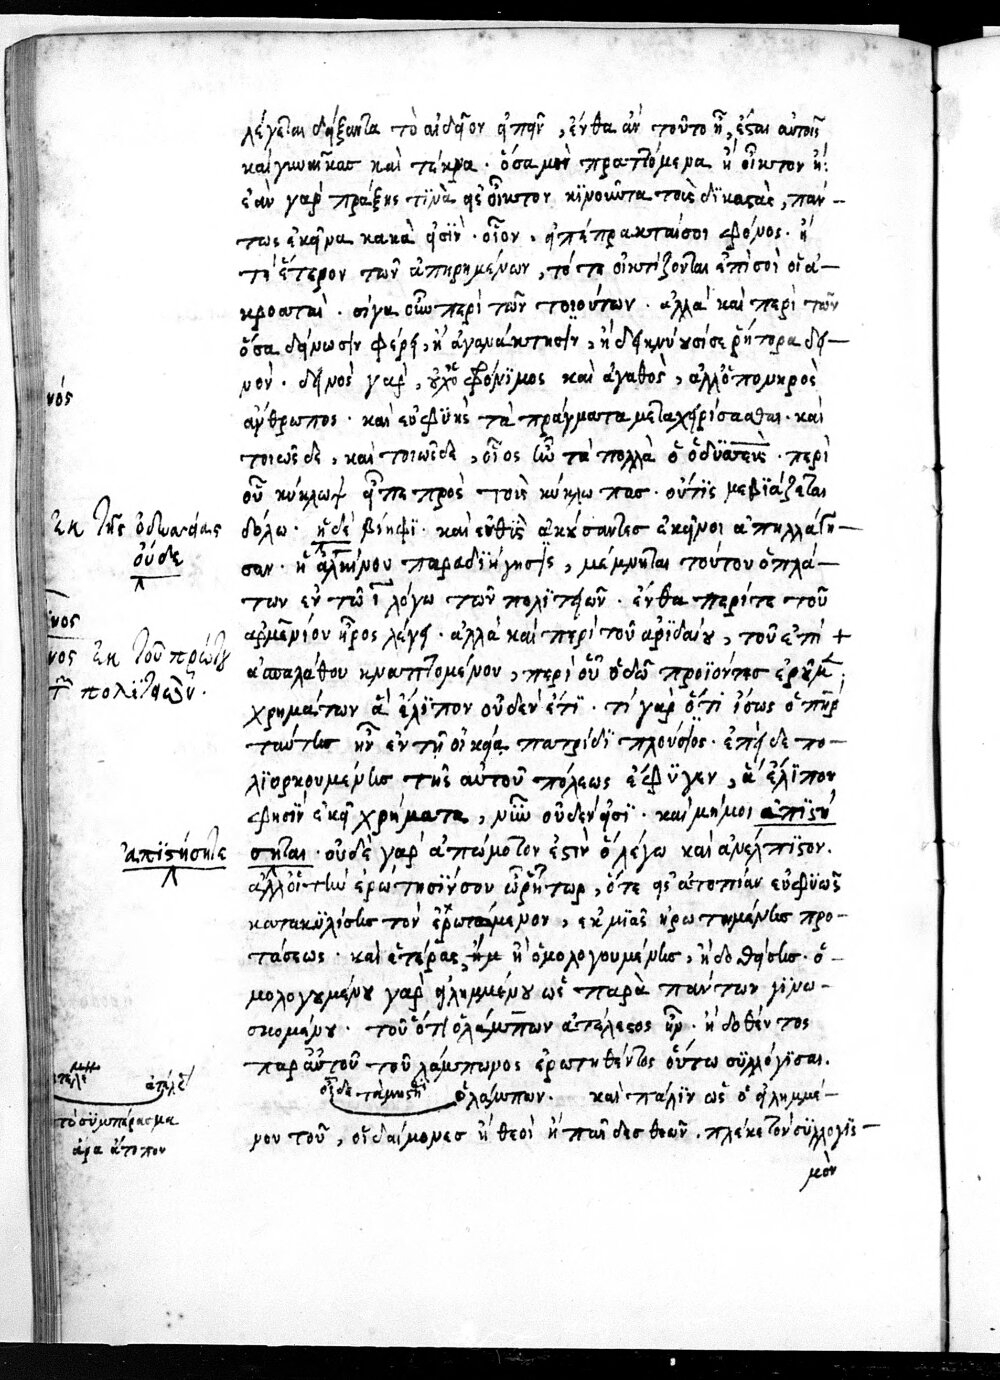 λέγεται δείξαντα τὸ αἰδοῖον εἰπεῖν, ἔνθα ἂν τοῦτο ᾖ, ἔσται αὐτοῖς
καὶ γυναῖκας καὶ τέκνα. ὅσα μὲν πραττόμενα ἢ οἶκτον ἢ
ἐὰν γὰρ πράξῃς τινὰ εἰς οἶκτον κινοῦντα τοὺς δικαστὰς, πάν-
τως ἐκεῖνα κακὰ εἰσὶν. οἷον, εἰ πέπρακταί σοι φόνος. ἢ
τι ἕτερον τῶν ἀπηρημένων, τότε οἰκτίζονται ἐπὶ σοὶ οἱ ἀ-
κροαταί. σίγα οὖν περὶ τῶν τοιούτων. ἀλλὰ καὶ περὶ τῶν
ὅσα δείνωσιν φέρει, ἢ ἀγανάκτησιν, ἢ δείκνυσί σε ῥήτορα δει-
νόν. δεινὸς γὰρ, οὐχ ὁ φρόνιμος καὶ ἀγαθὸς, ἀλλ' ὁ πονηρὸς
ἄνθρωπος. καὶ εὐφυὴς τὰ πράγματα μεταχειρίσασθαι. καὶ
τοιῶσδε, καὶ τοιῶσδε, οἷος ἦν τὰ πολλὰ ὁ ὀδυσσεὺς. περὶ
οὗ κύκλωψ εἶπε πρὸς τοὺς κύκλωπας. οὔτις με βιάζεται
δόλω. ἠδὲ βίηφι. καὶ εὐθὺς ἀκούσαντες ἐκεῖνοι ἀπηλλάγη-
σαν. ἡ ἀλκίνου παραδιήγησις, μέμνηται τούτου ὁ πλά-
των ἐν τῶ ι λόγω τῶν πολιτειῶν. ἔνθα περί τε τοῦ
ἀρμενίου ἠρὸς λέγει. ἀλλὰ καὶ περὶ τοῦ ἀριδαίου, τοῦ ἐπὶ +
ἀσπαλάθου κναπτομένου, περὶ οὗ ὁδῶ προϊόντες ἐροῦμεν.
χρημάτων ἃ ἔλιπον οὐδὲν ἔτι. τί γὰρ ὅτι ἴσως ὁ πατὴρ
ταύτης ἦν ἐν τῇ οἰκεία πατρίδι πλούσιος. ἐπεὶ δὲ πο-
λιορκουμένης τῆς αὐτοῦ πόλεως ἔφυγεν, ἃ ἔλιπον
φησὶν ἐκεῖ χρήματα, νῦν οὐδὲν εἰσί. καὶ μή μοι ἀπιστή
σηται. οὐδὲ γὰρ ἀπώμοτον ἐστὶν ὃ λέγω καὶ ἀνέλπιστον.
κατακυλίσης τὸν ἐρωτώμενον, ἐκ μιᾶς ἠρωτημένης προ-
τάσεως. καὶ ἑτέρας, ἢ ὁμολογουμένης, ἢ δοθείσης. ὁ-
μολογουμένου γὰρ εἰλημμένου ὡς παρὰ πάντων γινω-
σκομένου. τοῦ ὅτι ὁ λάμπων ἀτέλεστος ἦν. ἢ δοθέντος
παρ' αὐτοῦ τοῦ λάμπωνος ἐρωτηθέντος οὕτω συλλόγισαι.
ὁ λάμπων. καὶ πάλιν ὡς ὁ εἰλημμέ-
νου τοῦ, οἱ δαίμονες ἢ θεοὶ ἢ παῖδες θεῶν. πλέκε τὸν συλλογισ-
μὸν
νός
ἐκ τῆς ὀδυσσείας
οὐδὲ
νος
νος ἐκ τοῦ πρώτου
τῶν πολιτειῶν.
ἀπιστήσητε
ἀτελὲς
τὸ συμπέρασμα
ἄρα ἄτοπον